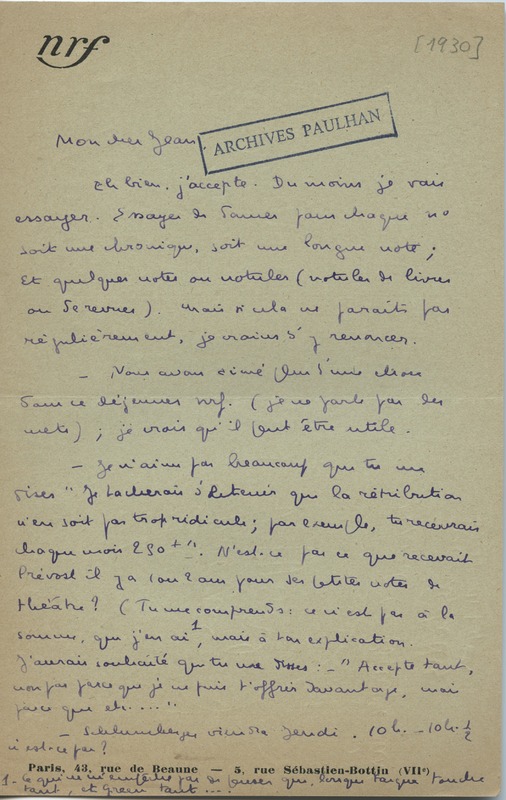 nrf
[1930]
ARCHIVES PAULHAN
Mon cher Jean
Eh bien, j'accepte. Du moins je vais
essayer. Essayer de donner pour chaque no
soit une chronique, soit une longue note ;
Et quelques notes ou notules (notules de livres
ou de revues). Mais si cela ne paraît pas
régulièrement, je crains d'y renoncer.
— Nous avons aimé plus d'une chose
dans ce déjeuner nrf. (je ne parle pas des
mets) ; je crois qu'il peut être utile.
— Je n'aime pas beaucoup que tu me
dises "Je tâcherais d'obtenir que la rétribution
n'en soit pas trop ridicule ; par exemple, tu recevrais
chaque mois 250 ". N'est-ce pas ce que recevait
Prévost il y a 1 ou 2 ans pour ses petites notes de
théâtre ? (Tu me comprends : ce n'est pas à la
somme, que j'en ai 1, mais à ton explication.
J'aurais souhaité que tu me dises : — " Accepte tant,
non pas parce que je ne puis t'offrir davantage, mais
parce que etc. .... "
— Schlumberger viendra jeudi. 10 h. — 10 h. 1/2
n'est-ce pas ?
Paris, 43, rue de Beaune — 5, rue Sébastien-Bottin (VIIe)
1 - Ce qui ne m'empêche pas de penser que, lorsque touche
tant, et Green tant ... !